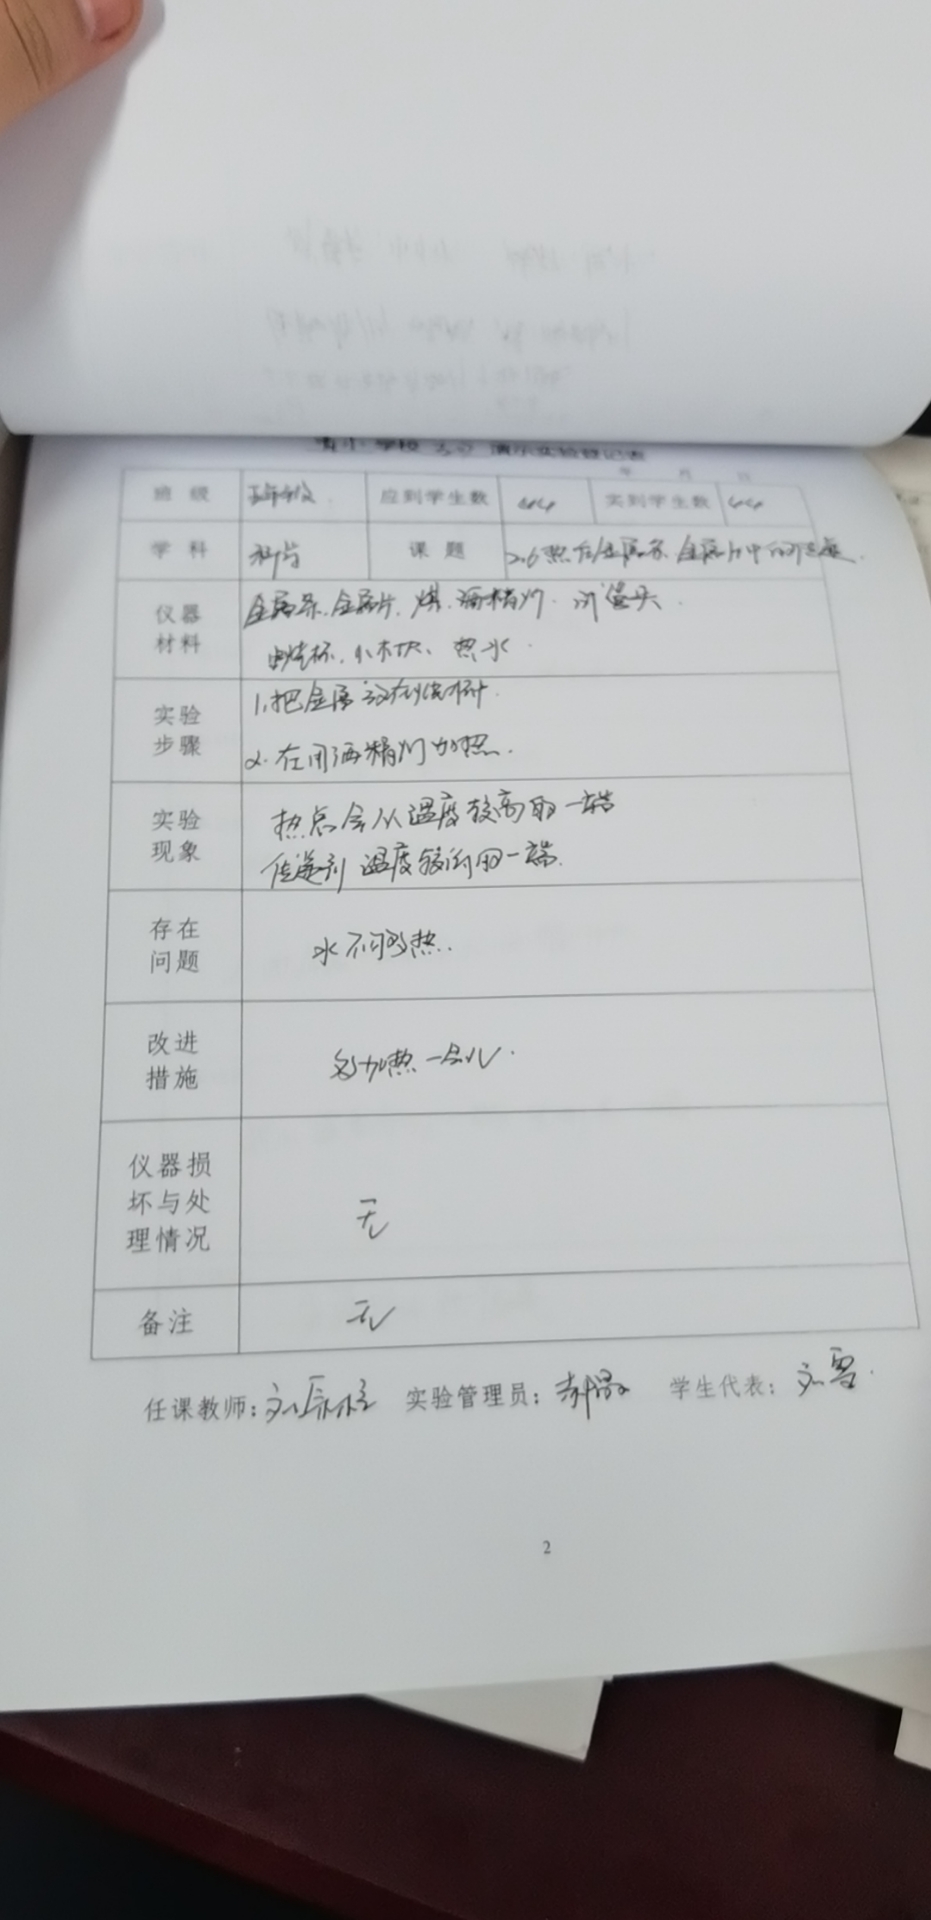 演示实验登记表
年 月 日
班级 五年级 应到学生数 44 实到学生数 44
学科 科学 课题 2.6热在金属条、金属片中的传递
仪器材料 金属条、金属片、蜡、酒精灯
烧杯、热水
实验步骤 1.把金属放在烧杯
2.在用酒精灯加热.
实验现象 热点会从温度较高的一端
传递到温度较低的一端.
存在问题 水不够热.
改进措施 多加热一会儿.
仪器损坏与处理情况 无
备注 无
任课教师: 实验管理员: 学生代表:
2